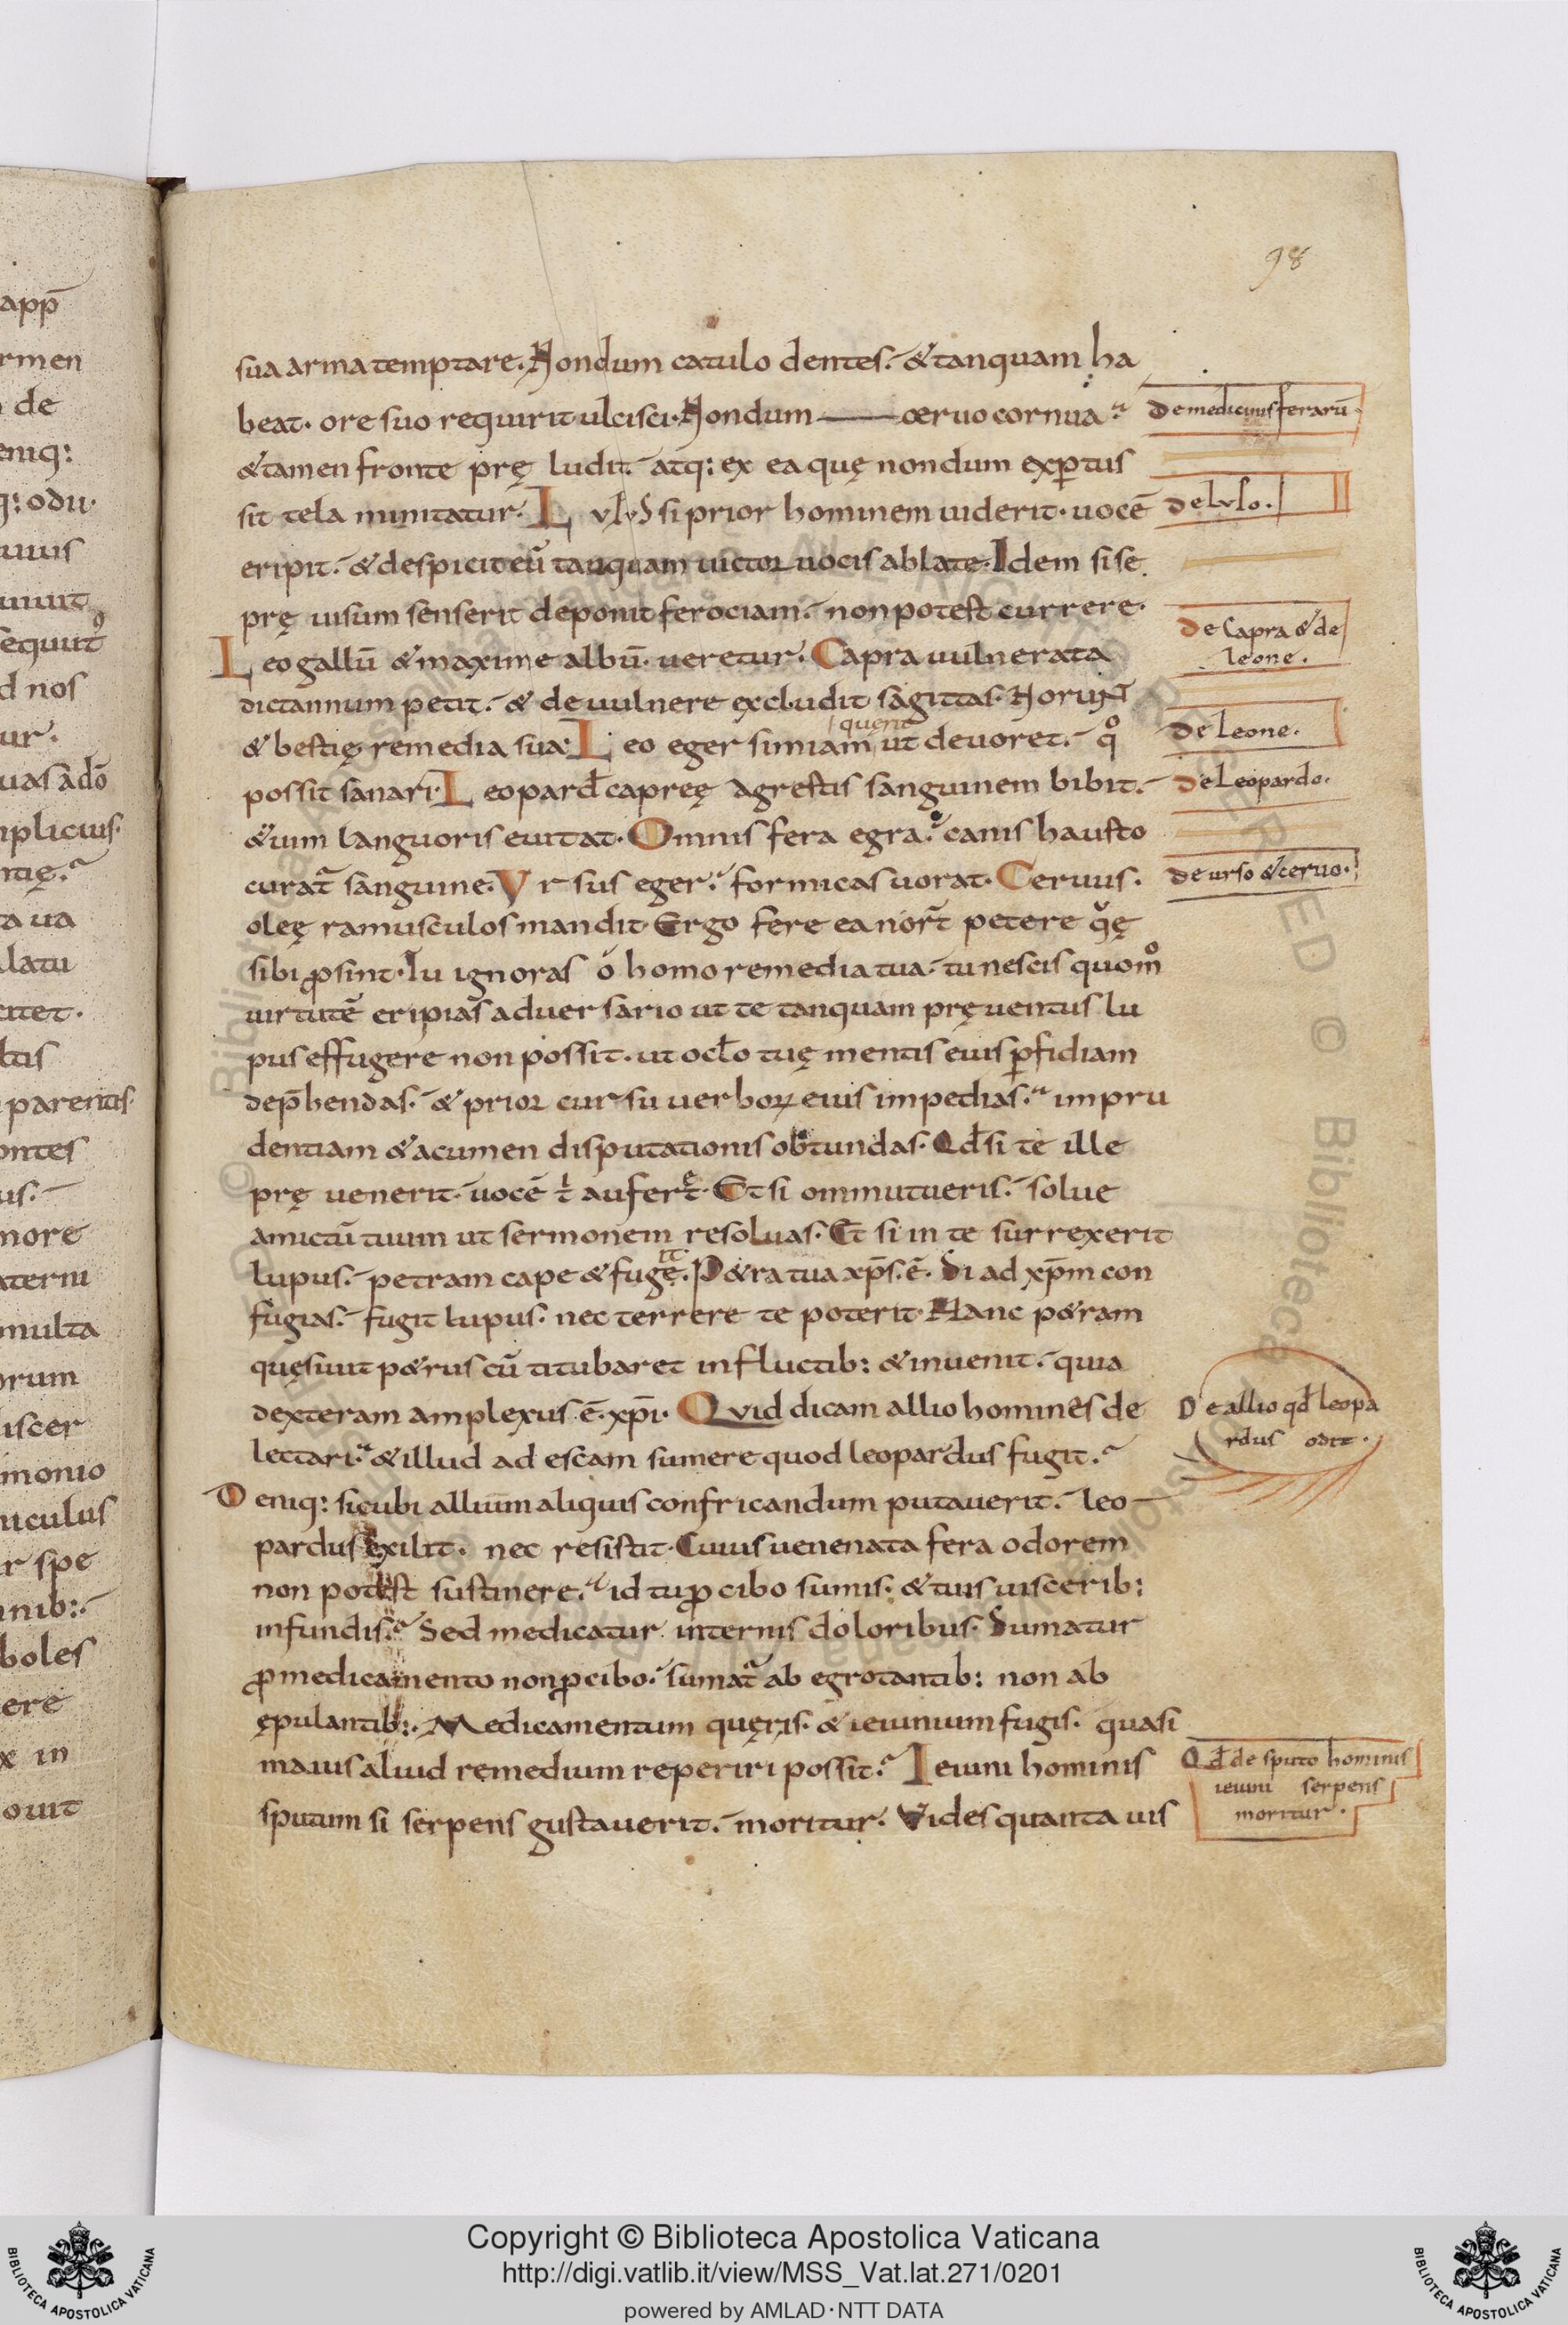 98
sua arma temptare. Nondum catulo dentes. & tanquam ha
beat. ore suo requirit ulcisci. Nondum cervo cornua
& tamen fronte prę ludit. atq: ex ea quę nondum exptus
sit tela minitatur. Lupus si prior hominem viderit. vocē
eripit. & despicit eū tanquam victor vocis ablate. Idem si se
prę visum senserit deponit ferociam. non potest currere.
Leo gallū & maxime albū. veretur. Capra vulnerata
dictannum petit. & de vulnere excludit sagittas. Norunt
& bestię remedia sua. Leo eger simiam querit ut devoret. qo
possit sanari. Leopard capreę agrestis sanguinem bibit.
& vim languoris evitat. Omnis fera egra. canis hausto
curat sanguine. Vrsus eger. formicas vorat. Cervus.
oleę ramusculos mandit. Ergo fere ea nort petere quę
sibi psint. Tu ignoras o homo remedia tua. tu nescis quomo
virtutē eripias adversario ut te tanquam pręventus lu
pus effugere non possit. ut oclo tuę mentis eius pfidiam
dephendas. & prior cursu verborꝝ eius impedias. impru
dentiam & acumen disputationis obtundas. Qd si te ille
prę venerit. vocē t aufert. Et si ommutueris. solve
amictū tuum ut sermonem resolvas. Et si in te surrexerit
lupus. petram cape & fugęit. P&ra tua xps. ē. Si ad xpm con
fugias. fugit lupus. nec terrere te poterit. Hanc p&ram
quęsivit p&rus cū titubaret in fluctib: & invenit. quia
dexteram amplexus ē. xpi. Quid dicam allio homines de
lectari. & illud ad escam sumere quod leopardus fugit.
Deniq: sicubi allium aliquis confricandum putaverit. leo
pardus exilit. nec resistit. Cuius venenata fera odorem
non potest sustinere. id tu p cibo sumis. & tuis viscerib:
infundis. Sed medicatur internis doloribus. Sumatur
p medicamento non p cibo. sumat ab egrotantib: non ab
ępulantib:. Medicamentum quęris. & ieiunium fugis. quasi
maius aliud remedium reperiri possit. Ieiuni hominis
sputum si serpens gustaverit. moritur. Vides quanta vis
De medicinis ferarū.
de lupo. II
De Capra & de
leone.
De leone.
de Leopardo.
de urso & cervo.
De allio qd leopa
rdus odit.
Qd de sputo hominis
ieiuni serpens
moritur.
app
rmen
de
eniq:
q: odii.
sequit
d nos
ur.
uas adō
mplicius.
ntię.
ta va
latu
ltis
parentis
ontes
us.
more
aterni
multa
orum
iscer
monio
niculus
r spe
nib:.
boles
ere
x in
ovit
Copyright © Biblioteca Apostolica Vaticana
http://digi.vatlib.it/view/MSS_Vat.lat.271/0201
powered by AMLAD·NTT DATA
BIBLIOTECA APOSTOLICA VATICANA
BIBLIOTECA APOSTOLICA VATICANA